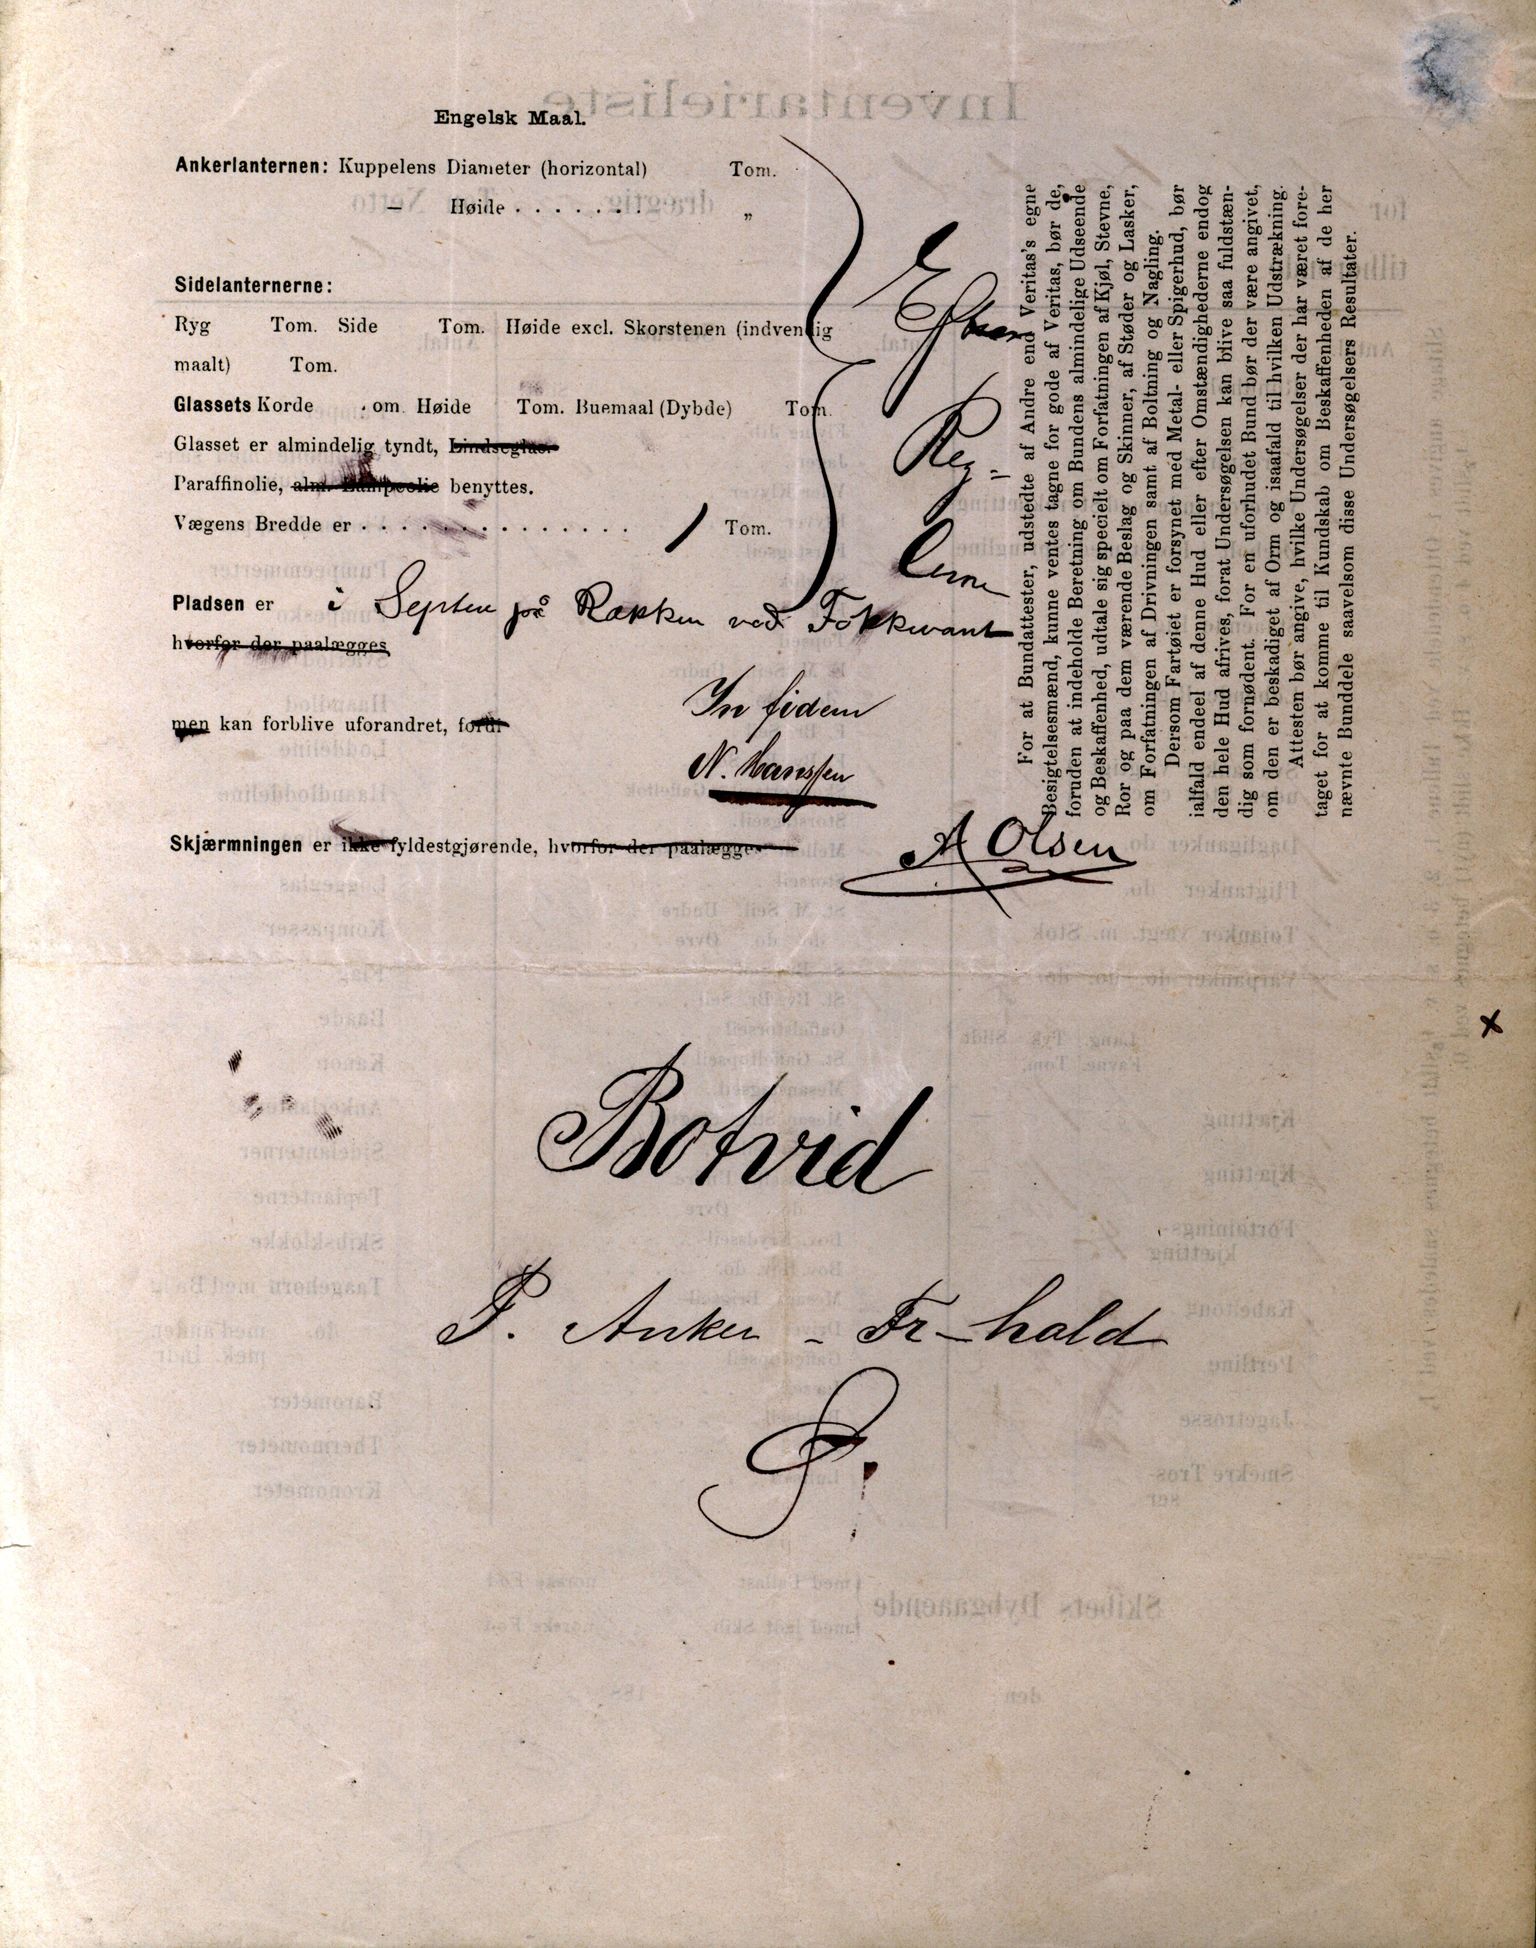 Engelsk Maal.
Ankerlanternen: Kuppelens Diameter (horizontal) Tom.
— Høide . . . . . . . . „
Sidelanternerne:
Ryg Tom. Side Tom. Høide excl. Skorstenen (indvendig
maalt) Tom.
Glassets Korde om. Høide Tom. Buemaal (Dybde) Tom.
Glasset er almindelig tyndt, Lindseglas.
Paraffinolie, alm. Lampeolie benyttes.
Vægens Bredde er . . . . . . . . . . . . . . 1 Tom.
Efter
Reg-
lerne
Pladsen er i Septen på Rækken ved Fokkevant
hvorfor der paalægges
men kan forblive uforandret, fordi
In fidem
N. Hanssen
A Olsen
Skjærmningen er ikke fyldestgjørende, hvorfor der paalægges
For at Bundattester, udstedte af Andre end Veritas's egne
Besigtelsesmænd, kunne ventes tagne for gode af Veritas, bør de,
foruden at indeholde Beretning om Bundens almindelige Udseende
og Beskaffenhed, udtale sig specielt om Forfatningen af Kjøl, Stevne,
Ror og paa dem værende Beslag og Skinner, af Støder og Lasker,
om Forfatningen af Drivningen samt af Boltning og Nagling.
Dersom Fartøiet er forsynet med Metal- eller Spigerhud, bør
ialfald endeel af denne Hud eller efter Omstændighederne endog
den hele Hud afrives, forat Undersøgelsen kan blive saa fuldstæn-
dig som fornødent. For en uforhudet Bund bør der være angivet,
om den er beskadiget af Orm og isaafald til hvilken Udstrækning.
Attesten bør angive, hvilke Undersøgelser der har været fore-
taget for at komme til Kundskab om Beskaffenheden af de her
nævnte Bunddele saavelsom disse Undersøgelsers Resultater.
x
Botvid
P. Anker - Fr-hald